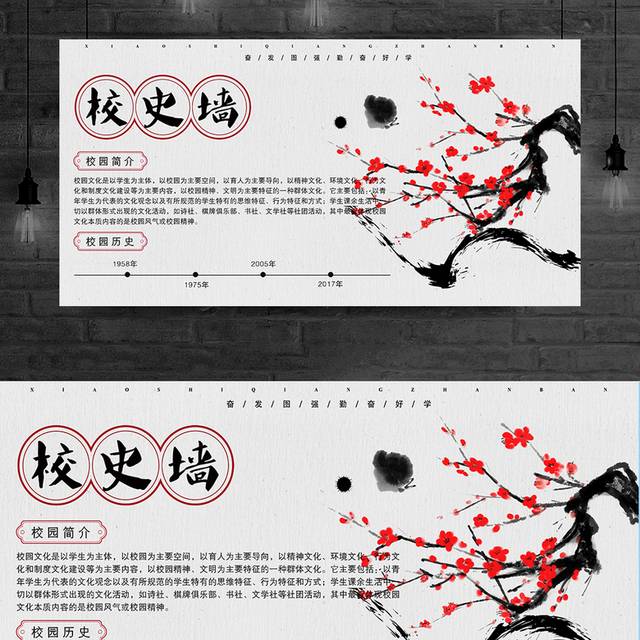 XIAOSHIQIANGZHANBAN
奋/发/图/强/勤/奋/好/学
校史墙
校园简介
校园文化是以学生为主体，以校园为主要空间，以育人为主要导向，以精神文化、环境文化、行为文
化和制度文化建设等为主要内容，以校园精神、文明为主要特征的一种群体文化。它主要包括：以青
年学生为代表的文化观念以及有所规范的学生特有的思维特征、行为特征和方式；学生课余生活中一
切以群体形式出现的文化活动，如诗社、棋牌俱乐部、书社、文学社等社团活动，其中最能体现校园
文化本质内容的是校园风气或校园精神。
校园历史
1958年
1975年
2005年
2017年
XIAOSHIQIANGZHANBAN
奋/发/图/强/勤/奋/好/学
校史墙
校园简介
校园文化是以学生为主体，以校园为主要空间，以育人为主要导向，以精神文化、环境文化、行为文
化和制度文化建设等为主要内容，以校园精神、文明为主要特征的一种群体文化。它主要包括：以青
年学生为代表的文化观念以及有所规范的学生特有的思维特征、行为特征和方式；学生课余生活中一
切以群体形式出现的文化活动，如诗社、棋牌俱乐部、书社、文学社等社团活动，其中最能体现校园
文化本质内容的是校园风气或校园精神。
校园历史